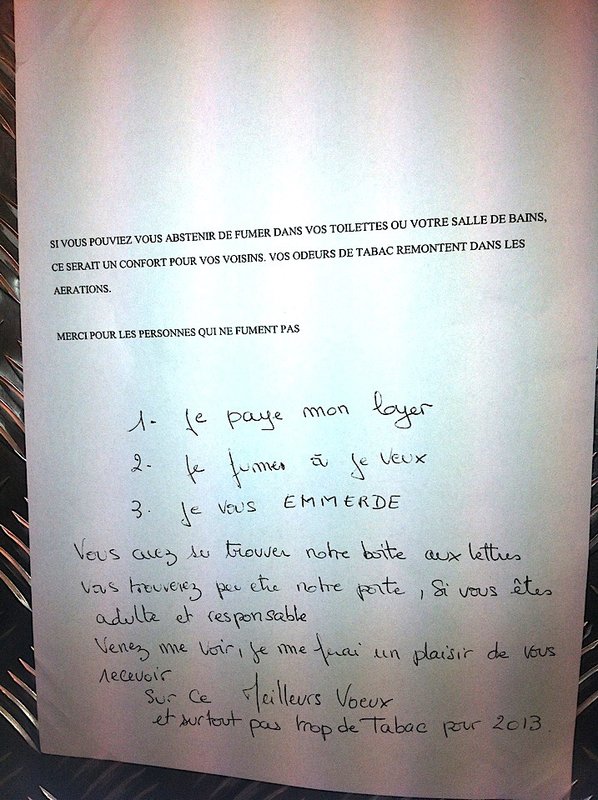 SI VOUS POUVIEZ VOUS ABSTENIR DE FUMER DANS VOS TOILETTES OU VOTRE SALLE DE BAINS,
CE SERAIT UN CONFORT POUR VOS VOISINS. VOS ODEURS DE TABAC REMONTENT DANS LES
AERATIONS.
MERCI POUR LES PERSONNES QUI NE FUMENT PAS
1- Je paye mon loyer
2- Je fume où je veux
3. Je vous EMMERDE
Vous avez su trouver notre boîte aux lettres
vous trouverez peu etre notre porte, Si vous êtes
adulte et responsable
Venez me voir, je me ferai un plaisir de vous
recevoir
Sur ce Meilleurs Voeux
et surtout pas trop de Tabac pour 2013.